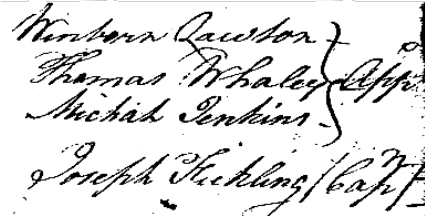 Winborn Lawton
Thomas Whaley } App
Michah Jenkins
Joseph Fickling (Cap